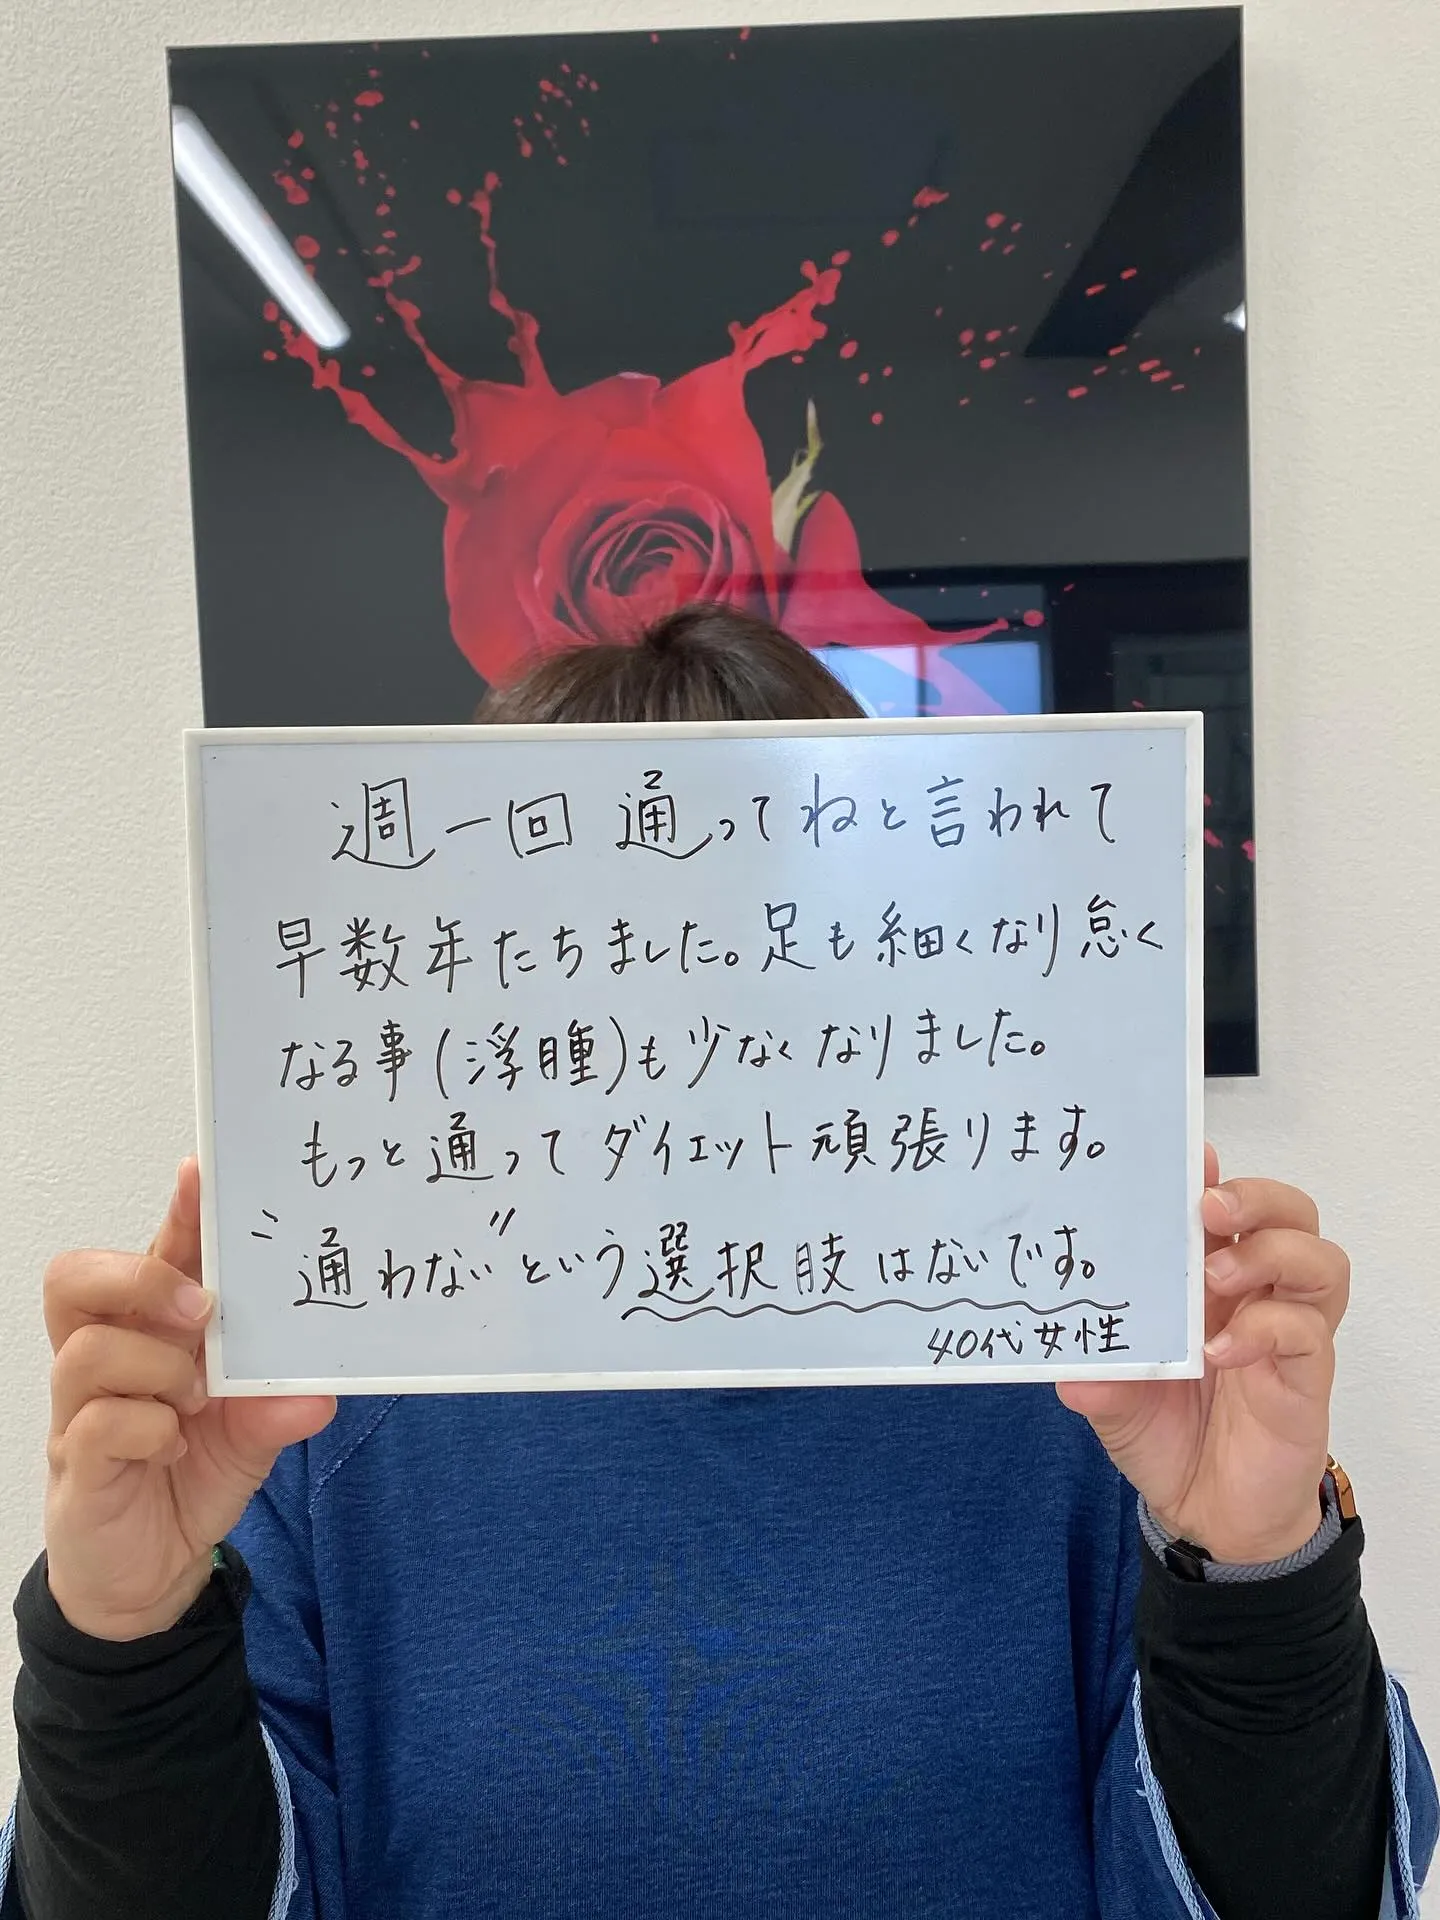 週一回 通ってねと言われて
早数年たちました。足も細くなり怠く
なる事(浮腫)も少なくなりました。
もっと通ってダイエット頑張ります。
"通わない"という選択肢はないです。
40代女性